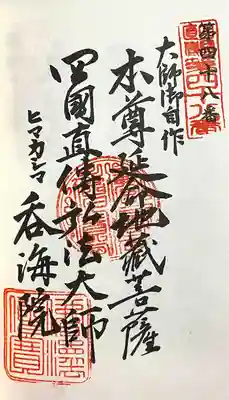 第四十八番
大師御自作
本尊 地藏菩薩
四國直傳弘法大師
ヒマカシマ
呑海院